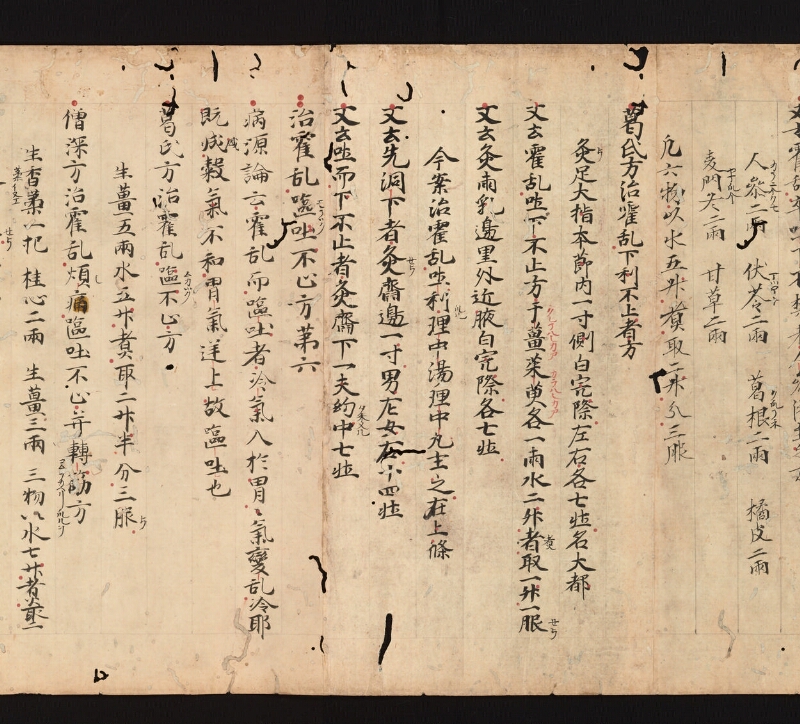 人参二兩 伏苓二兩 葛根二兩 橘皮二兩
麦門冬二兩 甘草二兩
凡六物以水五升煮取二升分三服
葛氏方治霍乱下利不止者方
灸足大指本節内一寸側白完際左右各七壮名大都
又云霍乱吐下不止方干薑茱萸各一兩水二升煮取一升一服
又云灸兩乳邊里外近腋白完際各七壮
今案治霍乱吐利理中湯理中丸主之在上條
又云先洞下者灸齊邊一寸男左女右十四壮
又云吐而下不止者灸齊下一夫約中七壮
治霍乱嘔吐不止方第六
病源論云霍乱而嘔吐者冷氣入於胃〻氣變乱冷耶
既成穀氣不和胃氣逆上故嘔吐也
葛氏方治霍乱嘔不止方
生薑五兩水五升煮取二升半分三服
僧深方治霍乱煩痛嘔吐不止并轉筋方
生香薷一把 桂心二兩 生薑三兩 三物以水七升煮取二